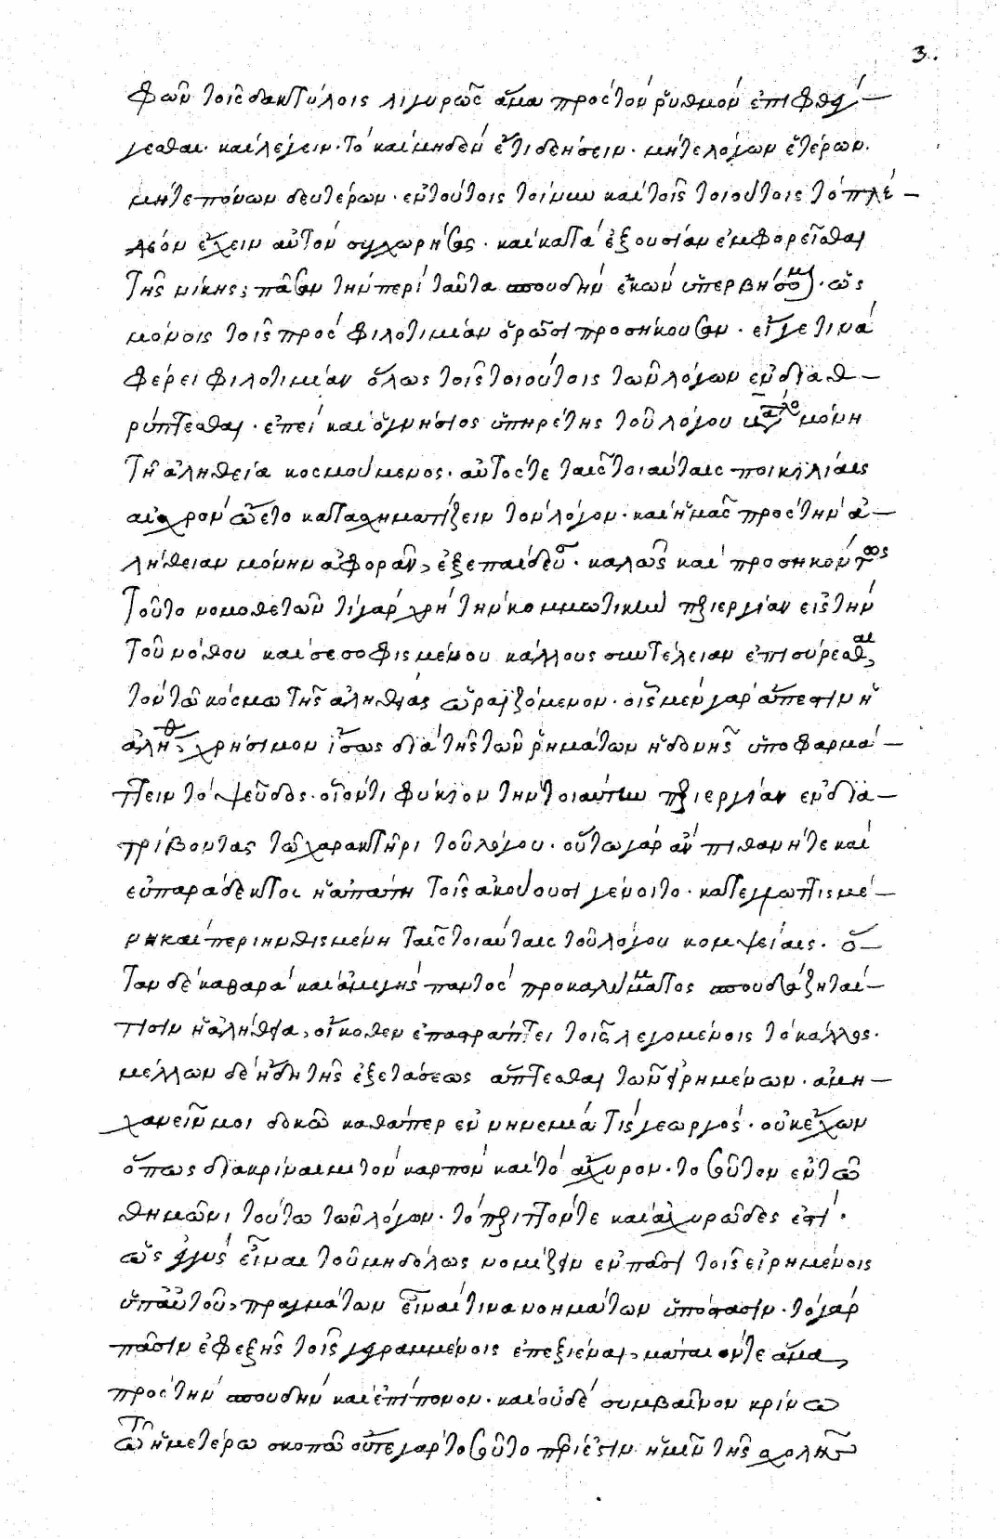 3.
φῶν τοῖς δακτύλοις λιγυρῶς ἅμα πρὸς τὸν ῥυθμὸν ἐπιφθέγ-
γεσθαι καὶ λέγειν. τὸ καὶ μηδὲν ἔτι δεήσειν. μήτε λόγων ἑτέρων.
μήτε πόνων δευτέρων. ἐν τούτοις τοίνυν καὶ τοῖς τοιούτοις τὸ πλέ-
λεον ἔχειν αὐτὸν συγχωρήσας. καὶ κατὰ ἐξουσίαν ἐμφορεῖσθαι
τῆς νίκης, πᾶσαν τὴν περὶ ταῦτα σπουδὴν ἑκὼν ὑπερβήσομαι. ὡς
μόνοις τοῖς πρὸς φιλοτιμίαν ὁρῶσι προσήκουσαν. εἴγε τινὰ
φέρει φιλοτιμίαν ὅλως τοῖς τοιούτοις τῶν λόγων ἐνδιαθ-
ρύπτεσθαι. ἐπεὶ καὶ ὁ γνήσιος ὑπηρέτης τοῦ λόγου μόνῃ
τῇ ἀληθείᾳ κοσμούμενος. αὐτός τε ταῖς τοιαύταις ποικιλίαις
αἰσχρὸν ᾤετο κατασχηματίζειν τὸν λόγον. καὶ ἡμᾶς πρὸς τὴν ἀ-
λήθειαν μόνην ἀφορᾶν, ἐξεπαίδευσε. καλῶς καὶ προσηκόντως
τοῦτο νομοθετῶν τί γὰρ χρὴ τὴν κομμωτικὴν περιεργίαν εἰς τὴν
τοῦ νόθου καὶ σεσοφισμένου κάλλους συντέλειαν ἐπισύρεσθαι,
τὸν τῷ κόσμῳ τῆς ἀληθείας ὡραϊζόμενον. οἷς μὲν γὰρ ἄπεστιν ἡ
ἀλήθεια, χρήσιμον ἴσως διὰ τῆς τῶν ῥημάτων ἡδονῆς ὑποφαρμά-
ττειν τὸ ψεῦδος. οἷόν τι φύκιον τὴν τοιαύτην περιεργίαν ἐνδια-
τρίβοντας τῷ χαρακτῆρι τοῦ λόγου. οὕτω γὰρ ἂν πιθανή τε καὶ
εὐπαράδεκτος ἡ ἀπάτη τοῖς ἀκούουσι γένοιτο. κατεγλωττισμέ-
νη καὶ περιηνθισμένη ταῖς τοιαύταις τοῦ λόγου κομψείαις. ὅ-
ταν δὲ καθαρὰ καὶ ἀμιγὴς παντὸς προκαλύμματος σπουδάζηται
τισὶν ἡ ἀλήθεια, οἴκοθεν ἐπαστράπτει τοῖς λεγομένοις τὸ κάλλος.
μέλλων δὲ ἤδη τῆς ἐξετάσεως ἅπτεσθαι τῶν εἰρημένων. ἀμη-
χανεῖν μοι δοκῶ καθάπερ ἐν νηνεμίᾳ τίς γεωργός. οὐκ ἔχων
ὅπως διακρίναιμι τὸν καρπὸν καὶ τὸ ἄχυρον. τοσοῦτον ἐν τῷ
θημῶνι τούτῳ τῶν λόγων. τὸ περιττόν τε καὶ ἀχυρῶδες ἐστί.
ὡς ἐγγὺς εἶναι τοῦ μηδόλως νομίζειν ἐν πᾶσι τοῖς εἰρημένοις
ὑπ' αὐτοῦ, πραγμάτων εἶναί τινα νοημάτων ὑπόστασιν. τὸ γὰρ
πᾶσιν ἐφεξῆς τοῖς γεγραμμένοις ἐπεξιέναι, μάταιόν τε ἅμα,
πρὸς τὴν σπουδὴν καὶ ἐπίπονον. καὶ οὐδὲ συμβαῖνον κρίνω
τῷ ἡμετέρῳ σκοπῷ οὔτε γὰρ τοσοῦτο περίεστιν ἡμῖν τῆς σχολῆς